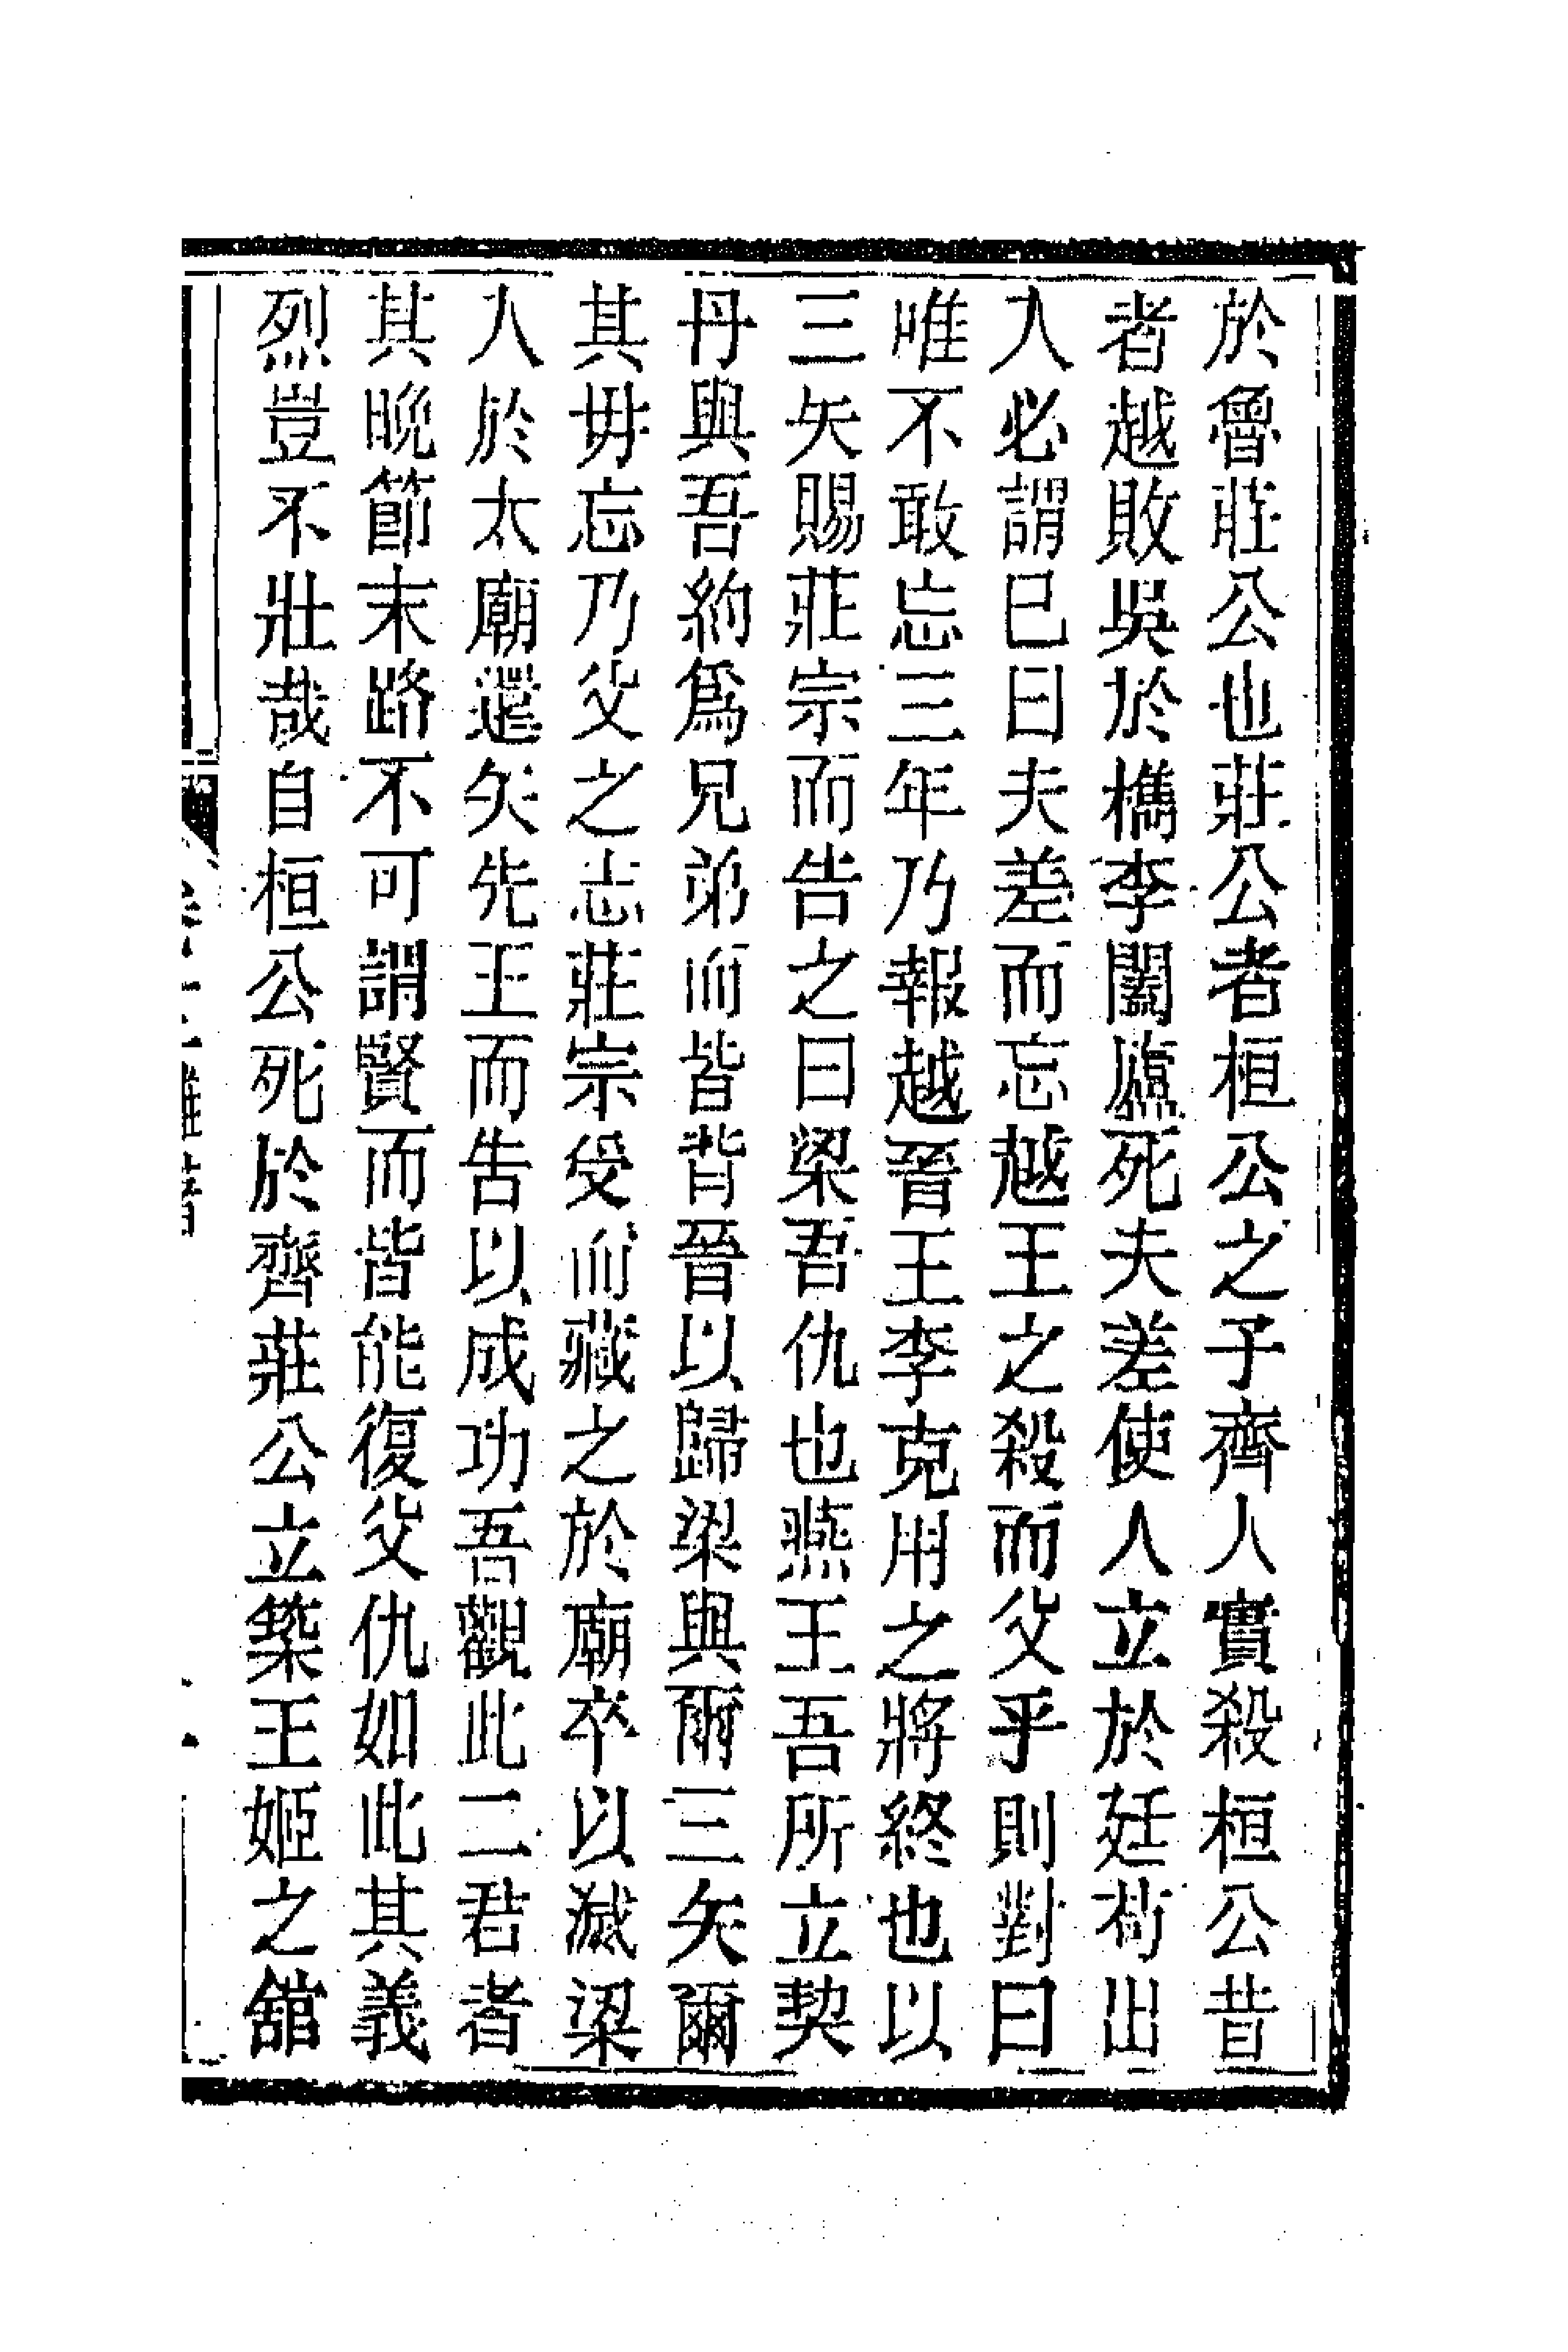 於魯莊公也莊公者桓公之子齊人實殺桓公昔
者越敗吳於檇李闔廬死夫差使人立於廷苟出
入必謂已曰夫差而忘越王之殺而父乎則對曰
唯不敢忘三年乃報越晉王李克用之將終也以
三矢賜莊宗而告之曰梁吾仇也燕王吾所立契
丹與吾約爲兄弟而皆背晉以歸梁與爾三矢爾
其毋忘乃父之志莊宗受而藏之於廟卒以滅梁
入於太廟還矢先王而告以成功吾觀此二君者
其晚節末路不可謂賢而皆能復父仇如此其義
烈豈不壯哉自桓公死於齊莊公立築王姬之舘